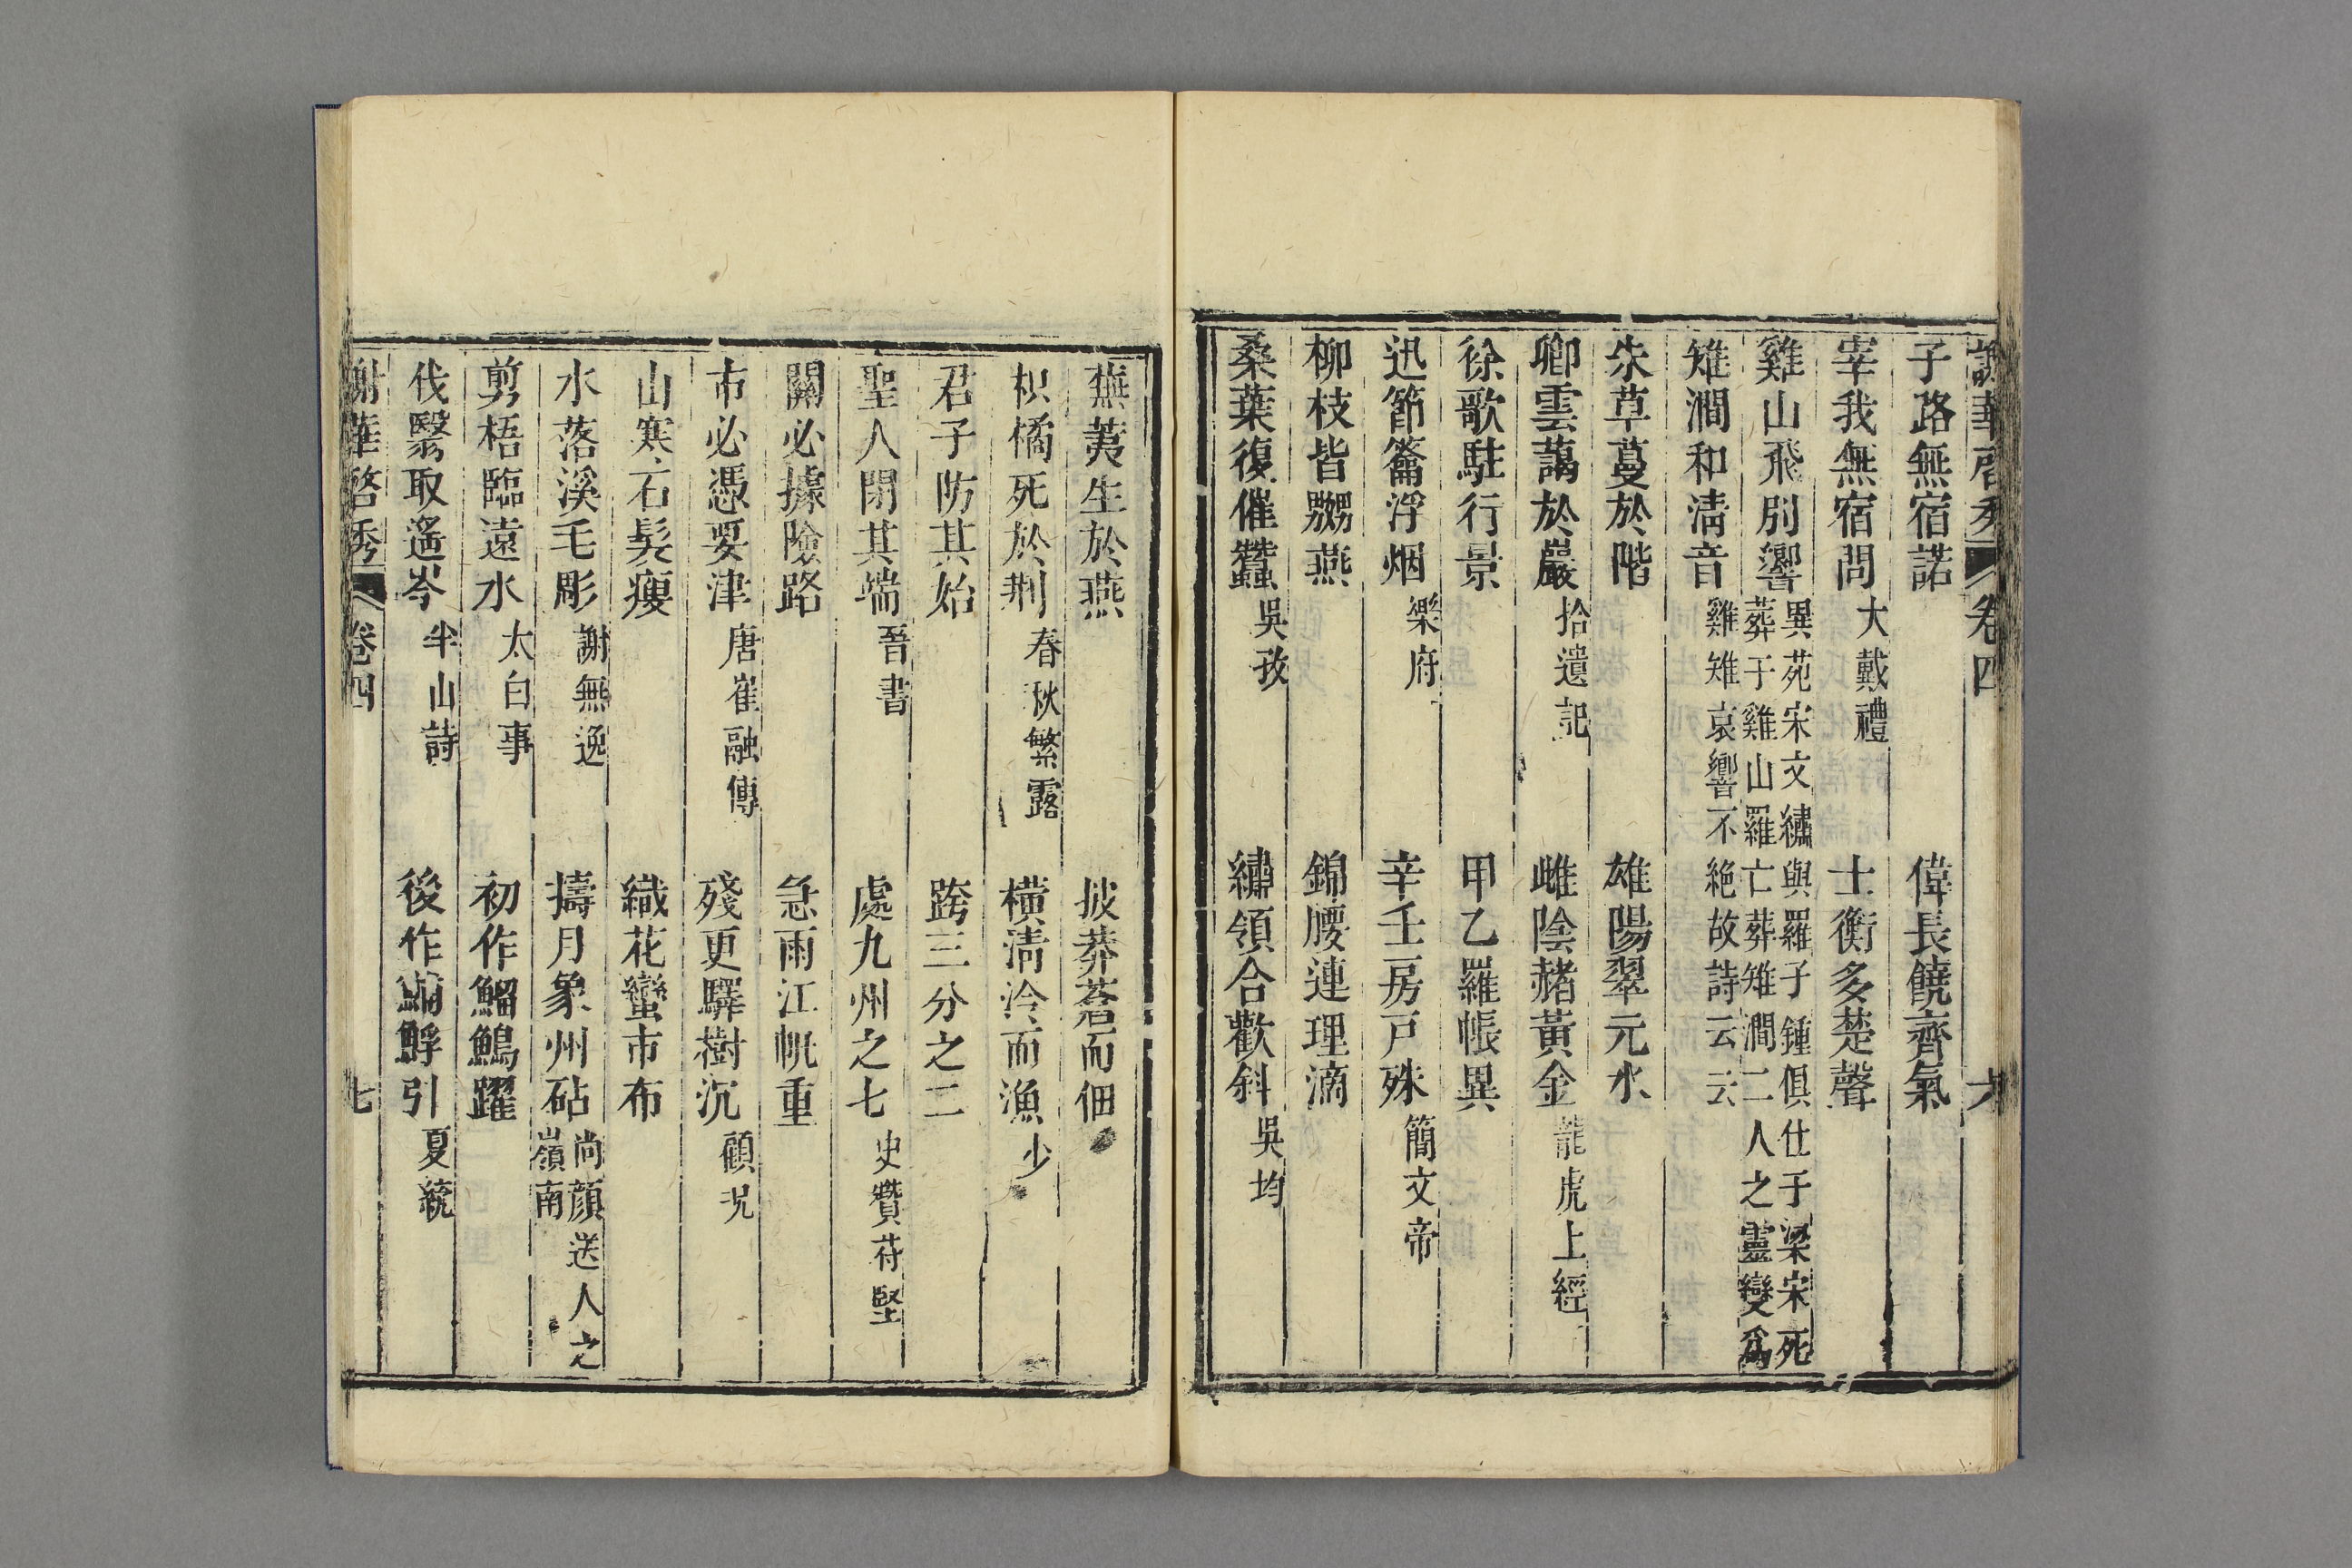 謝華啓秀 卷四 六
子路無宿諾 偉長饒齊氣
宰我無宿問 大戴禮 士衡多楚聲
雞山飛別響 異苑宋文繡與羅子鍾俱仕于梁宋死
葬于雞山羅亡葬雉澗二人之靈變爲
雉澗和清音 雞雉哀響不絶故詩云云
朱草蔓於階 雄陽翠元水
卿雲藹於巖 拾遺記 雌陰赭黃金 龍虎上經
徐歌駐行景 甲乙羅帳異
迅節籥浮烟 樂府 辛壬房戸殊 簡文帝
柳枝皆嬲燕 錦腰連理滴
桑葉復催蠶 吳孜 繡領合歡斜 吳均
蕪荑生於燕 披莽蒼而佃
枳橘死於荆 春秋繁露 橫淸泠而漁 少
君子防其始 跨三分之二
聖人閉其端 吾書 處九州之七 史贊苻堅
關必據險路 急雨江帆重
市必憑要津 唐崔融傳 殘更驛樹沉 顧況
山寒石髮瘦 織花蠻市布
水落溪毛彫 謝無逸 擣月象州砧 尚顔送人之
嶺南
剪梧臨遠水 太白事 初作鰡鷠躍
伐翳取遙岑 半山詩 後作鯆䱐引 夏統
謝華啓秀 卷四 七